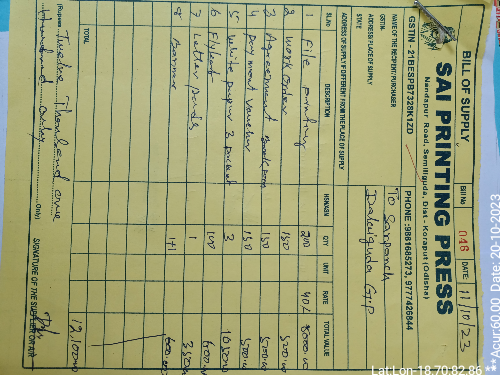 BILL OF SUPPLY
Bill No. 046 DATE: 11/10/23
SAI PRINTING PRESS
Nandapur Road, Semiliguda, Dist. Koraput (Odisha)
GSTIN - 21BESPB7328K1ZD PHONE :9861685273, 9777426844
NAME OF THE RECIPIENT PURCHASER
GSTIN:
ADDRESS PLACE OF SUPPLY
STATE:
ADDRESS OF SUPPLY IF DIFFERENT FROM THE PLACE OF SUPPLY
To Sarpanch
G.P
SL.No. DESCRIPTION HSN/ASN QTY UNIT RATE TOTAL VALUE
1 File printing 200 40/- 8000.00
2 work order 150
3 Agreement 150
4 payment voucher 150
5 white paper 3
6 100 600.00
7 Letter pads 1
8 Banner 1+1 600.00
TOTAL
(Rupees Twelve Thousand one
Hundred only Only)
SIGNATURE OF THE SUPPLIER OR
Lat Lon-18.70,82.86 **Acur:6000 Date:20-10-2023